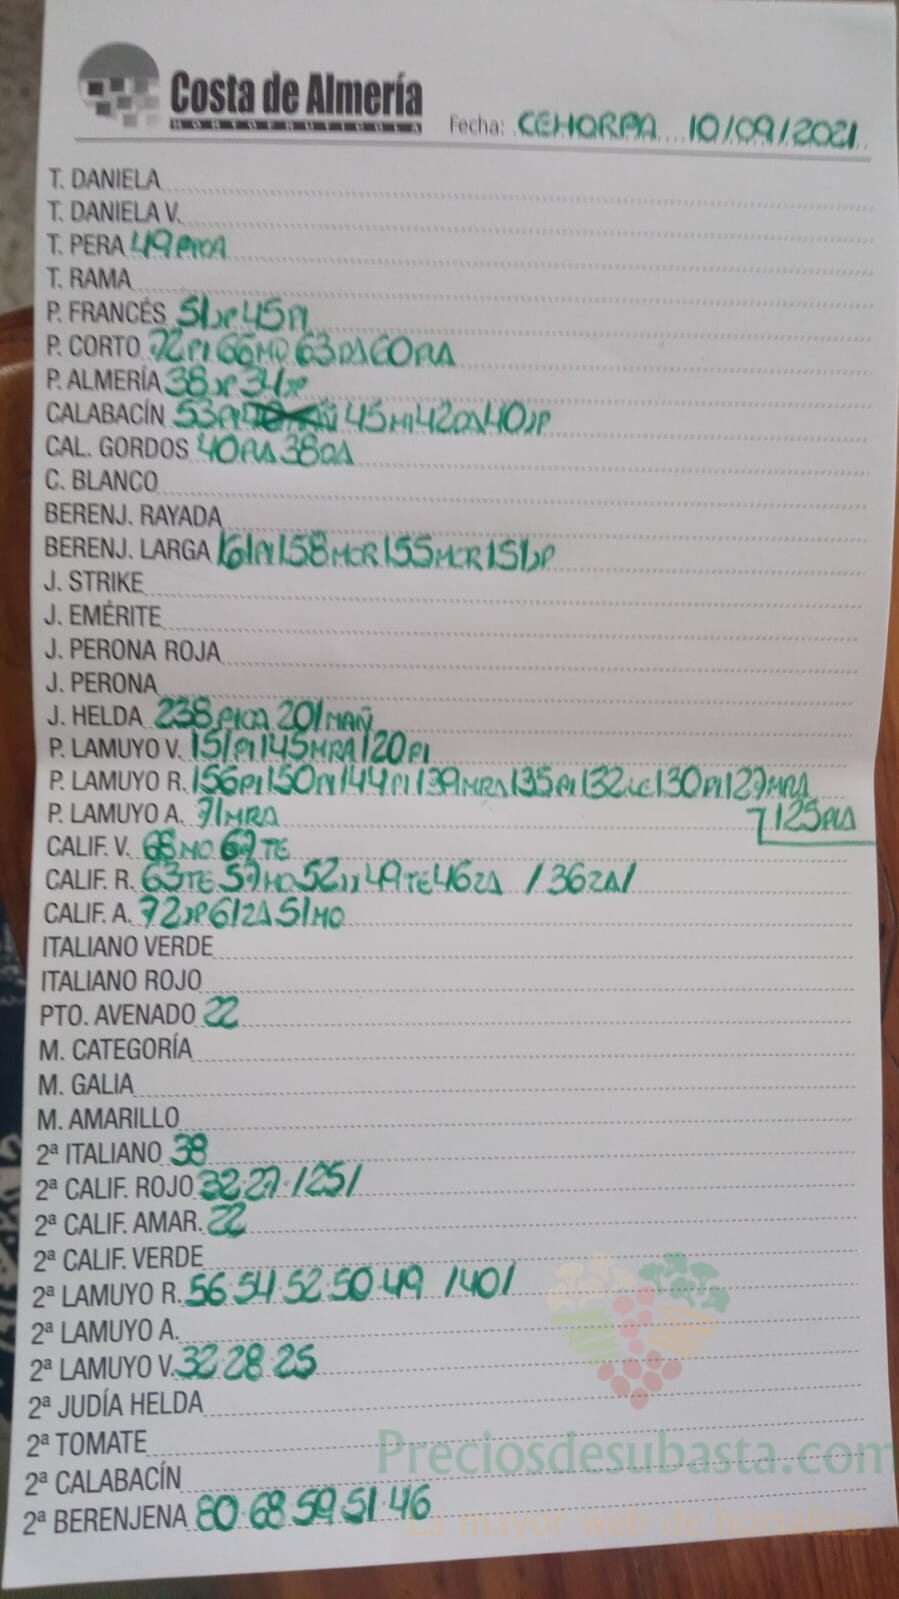 Costa de Almería
HORTOFRUTÍCOLA
Fecha: CEHORPA 10/09/2021
T. DANIELA
T. DANIELA V.
T. PERA 49 PICA
T. RAMA
P. FRANCÉS 51JP 45PI
P. CORTO 72PI 66MO 63DA 60PLA
P. ALMERÍA 38JP 34JP
CALABACÍN 53PI 45MI 42DA 40JP
CAL. GORDOS 40PLA 38DA
C. BLANCO
BERENJ. RAYADA
BERENJ. LARGA 161PI 158MCR 155MCR 151JP
J. STRIKE
J. EMÉRITE
J. PERONA ROJA
J. PERONA
J. HELDA 238 PICA 201MAÑ
P. LAMUYO V. 151PI 145MRA 120PI
P. LAMUYO R. 156PI 150PI 144PI 139MRA 135PI 132LE 130PI 127MRA
P. LAMUYO A. 71MRA 125PLA
CALIF. V. 68MO 67TE
CALIF. R. 63TE 57MO 52JJ 49TE 46ZA /36ZA/
CALIF. A. 72JP 61ZA 51MO
ITALIANO VERDE
ITALIANO ROJO
PTO. AVENADO 22
M. CATEGORÍA
M. GALIA
M. AMARILLO
2ª ITALIANO 38
2ª CALIF. ROJO 32·27·/25/
2ª CALIF. AMAR. 22
2ª CALIF. VERDE
2ª LAMUYO R. 56·54·52·50·49 /40/
2ª LAMUYO A.
2ª LAMUYO V. 32·28·25
2ª JUDÍA HELDA
2ª TOMATE
Preciosdesubasta.com
2ª CALABACÍN
2ª BERENJENA 80·68·59·51·46
La mayor web de hortalizas